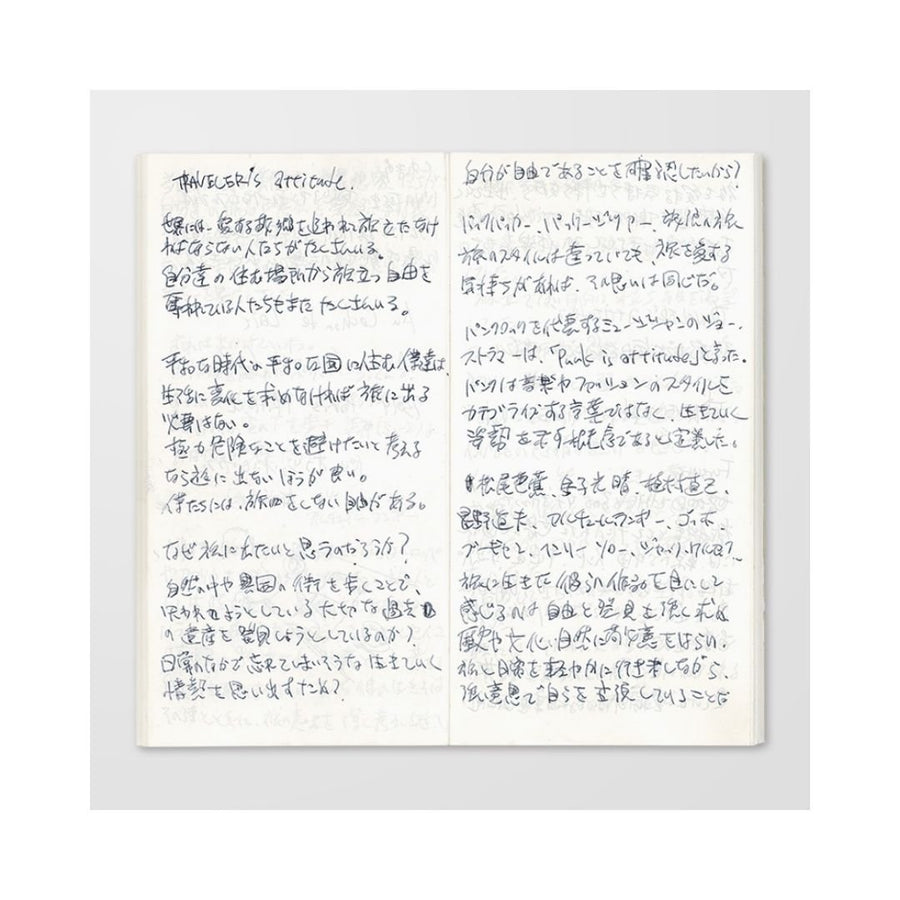 TRAVELER'S attitude.
世界には、愛する故郷を追われて旅立たなけ
ればならない人たちがたくさんいる。
自分達の住む場所から旅立つ自由を
奪われている人たちもまた たくさんいる。
平和な時代の平和な国に住む僕達は、
生活に変化を求めなければ 旅に出る
必要はない。
極力危険なことを避けたいと考える
なら旅に出ないほうが良い。
僕たちには、旅をしない自由がある。
なぜ旅に出たいと思うのだろうか?
自然の中や異国の街を歩くことで、
失われようとしている大切な過去
の遺産を発見しようとしているのか?
日常のなかで忘れてしまいそうな 生きていく
情熱を思い出すため?
自分が自由であることを確認したいから?
バックパッカー、パッケージツアー、放浪の旅
旅のスタイルは違っていても、旅を愛する
気持ちがあれば、その思いは同じだ。
パンクロックを代表するミュージシャンのジョー・
ストラマーは、「Punk is attitude」と言った。
パンクは音楽やファッションのスタイルを
カテゴライズする言葉ではなく、生きていく
姿勢を示す概念であると定義した。
松尾芭蕉、金子光晴、植村直己、
星野道夫、アルチュールランボー、ゴッホ、
ゴーギャン、ヘンリー・ソロー、ジャック・ケルアック、
旅に生きた彼らの作品を目にして
感じるのは 自由と発見を強く求め
歴史や文化、自然に敬意をはらい、
旅と日常を軽やかに行き来しながら、
強い意思で自らを表現していることだ